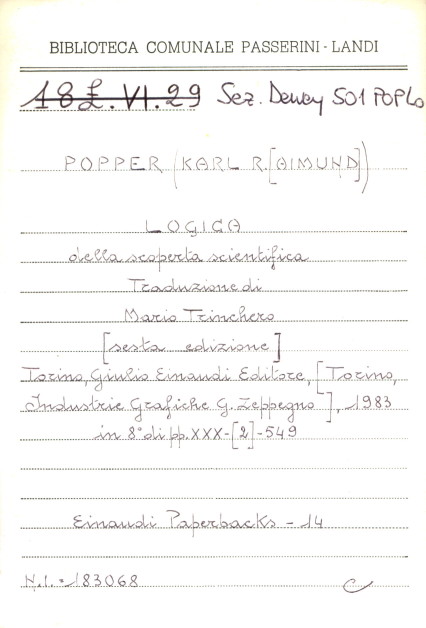 BIBLIOTECA COMUNALE PASSERINI - LANDI
18 £. VI. 29 Sez. Dewey 501 POPLo
POPPER (KARL R.[AIMUND])
LOGICA
della scoperta scientifica
Traduzione di
Mario Trinchero
[sesta edizione]
Torino, Giulio Einaudi Editore, [Torino,
Industrie Grafiche G. Zeppegno], 1983
in 8° di pp. XXX-[2]-549
Einaudi Paperbacks - 14
N.I. = 183068